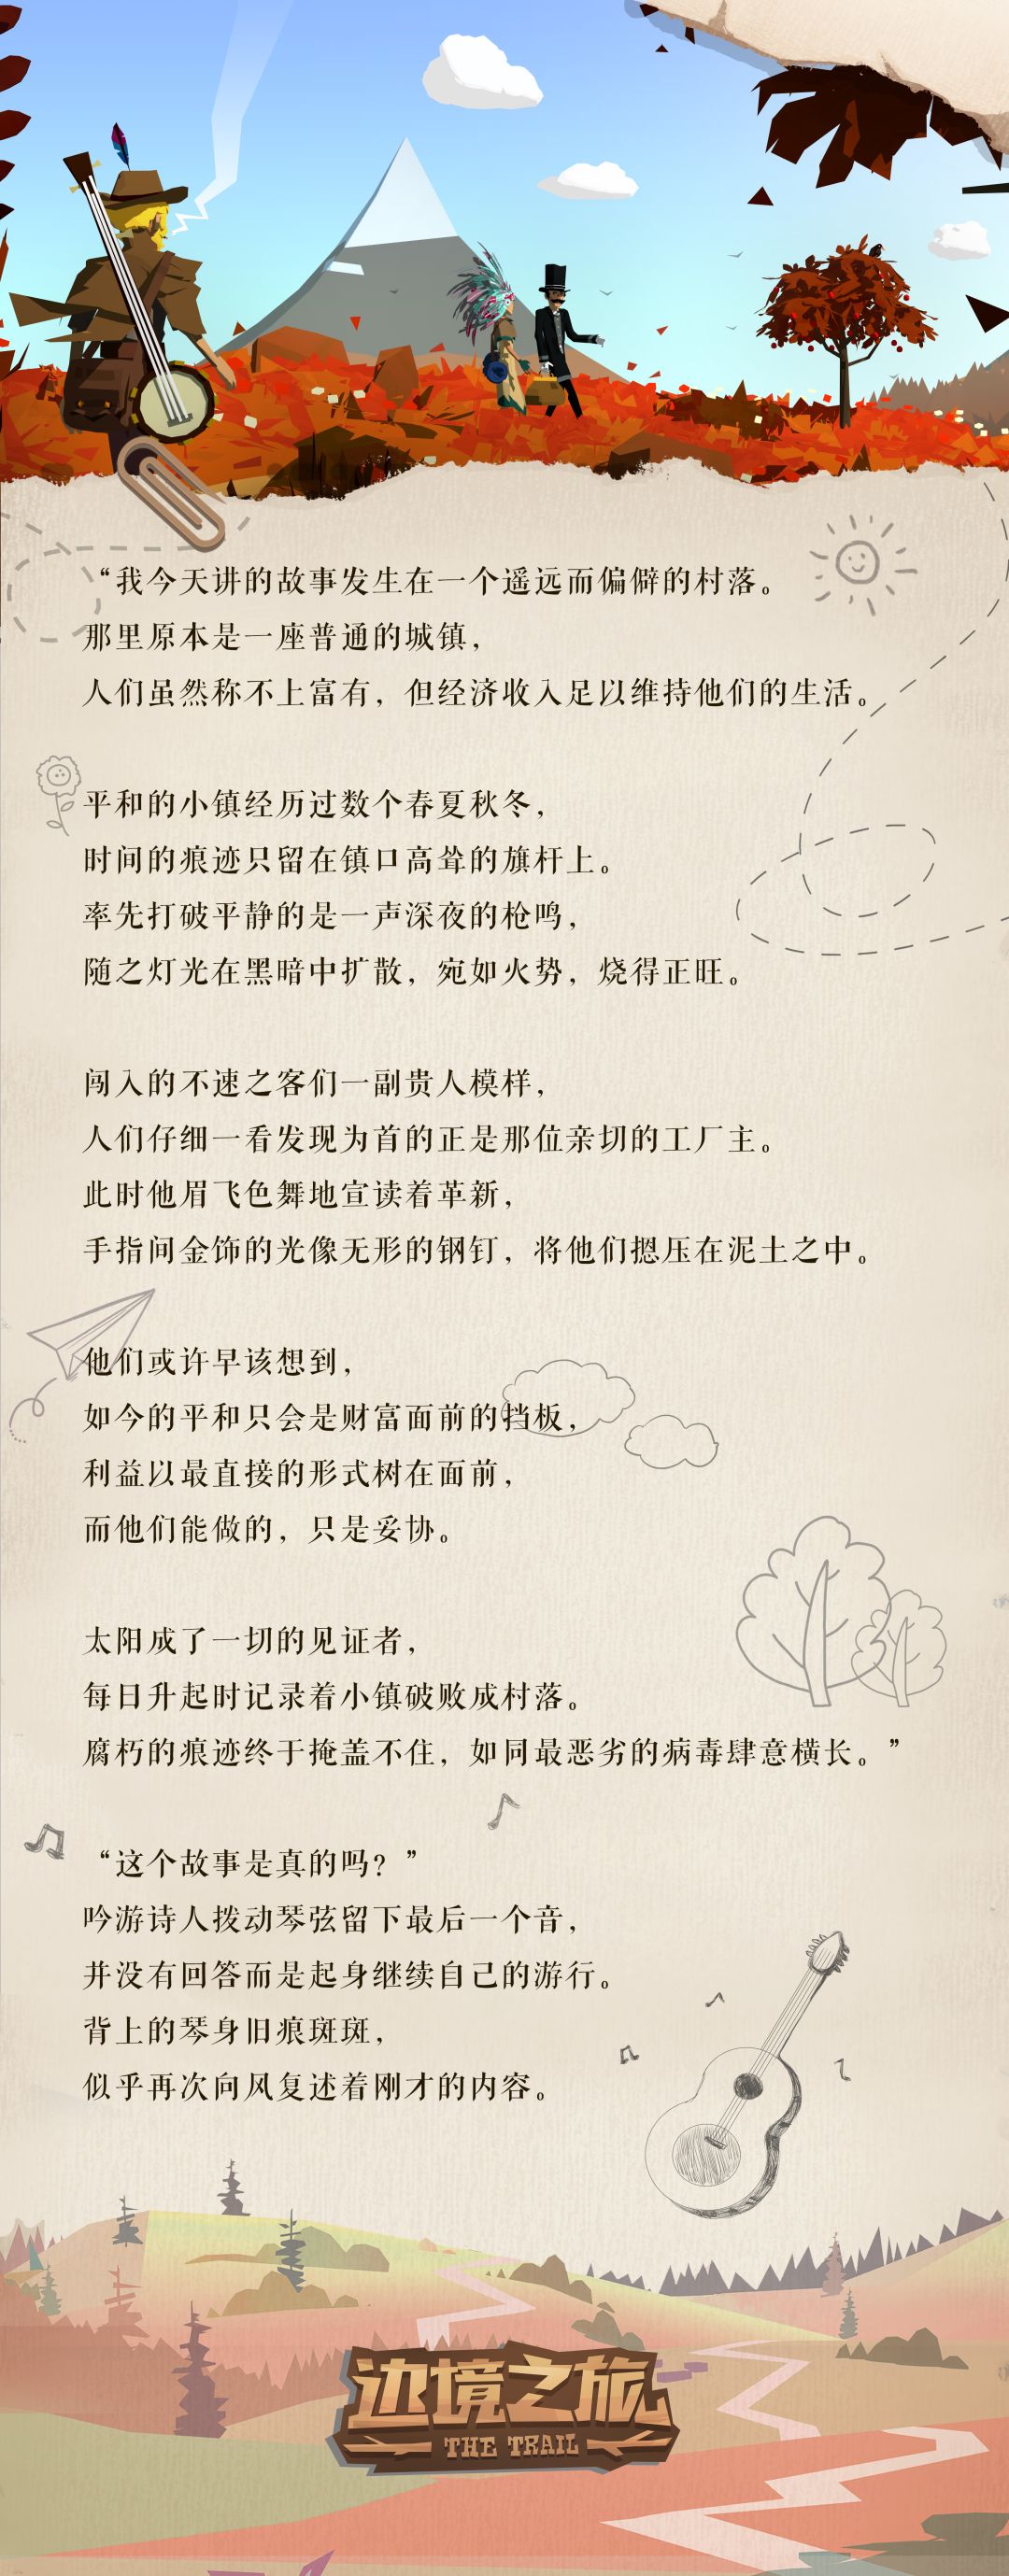 “我今天讲的故事发生在一个遥远而偏僻的村落。
那里原本是一座普通的城镇，
人们虽然称不上富有，但经济收入足以维持他们的生活。
平和的小镇经历过数个春夏秋冬，
时间的痕迹只留在镇口高耸的旗杆上。
率先打破平静的是一声深夜的枪鸣，
随之灯光在黑暗中扩散，宛如火势，烧得正旺。
闯入的不速之客们一副贵人模样，
人们仔细一看发现为首的正是那位亲切的工厂主。
此时他眉飞色舞地宣读着革新，
手指间金饰的光像无形的钢钉，将他们摁压在泥土之中。
他们或许早该想到，
如今的平和只会是财富面前的挡板，
利益以最直接的形式树在面前，
而他们能做的，只是妥协。
太阳成了一切的见证者，
每日升起时记录着小镇破败成村落。
腐朽的痕迹终于掩盖不住，如同最恶劣的病毒肆意横长。”
“这个故事是真的吗？”
吟游诗人拨动琴弦留下最后一个音，
并没有回答而是起身继续自己的游行。
背上的琴身旧痕斑斑，
似乎再次向风复述着刚才的内容。
边境之旅
THE TRAIL